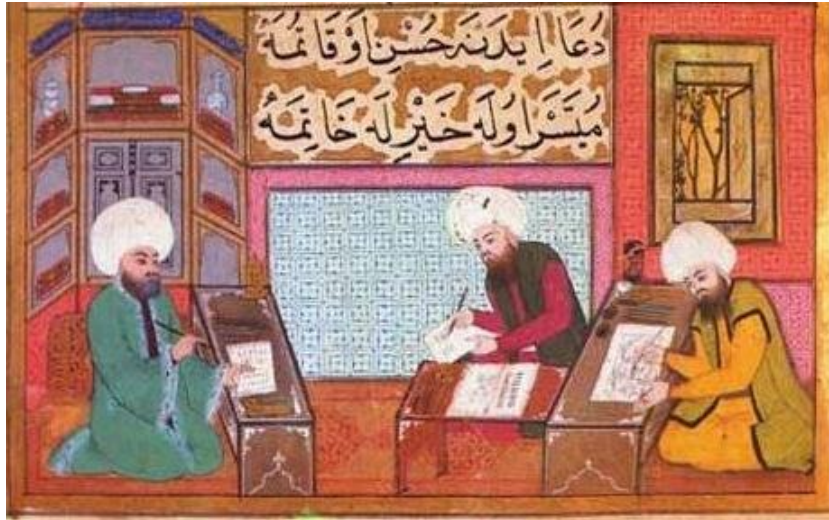 دُعَا اِيدَنَه حُسْنِ اَوْقَاتُمَه
مُيَسَّرْ اَوُلَه خَيْرِلَه خَاتِمَهْ